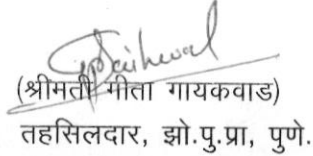 (श्रीमती गीता गायकवाड)
तहसिलदार, झो.पु.प्रा, पुणे.